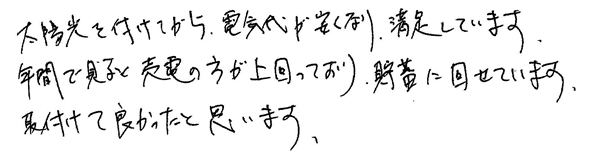 太陽光を付けてから、電気代が安くなり、満足しています、
年間で見ると売電の方が上回っており、貯蓄に回せています、
取付けて良かったと思います、